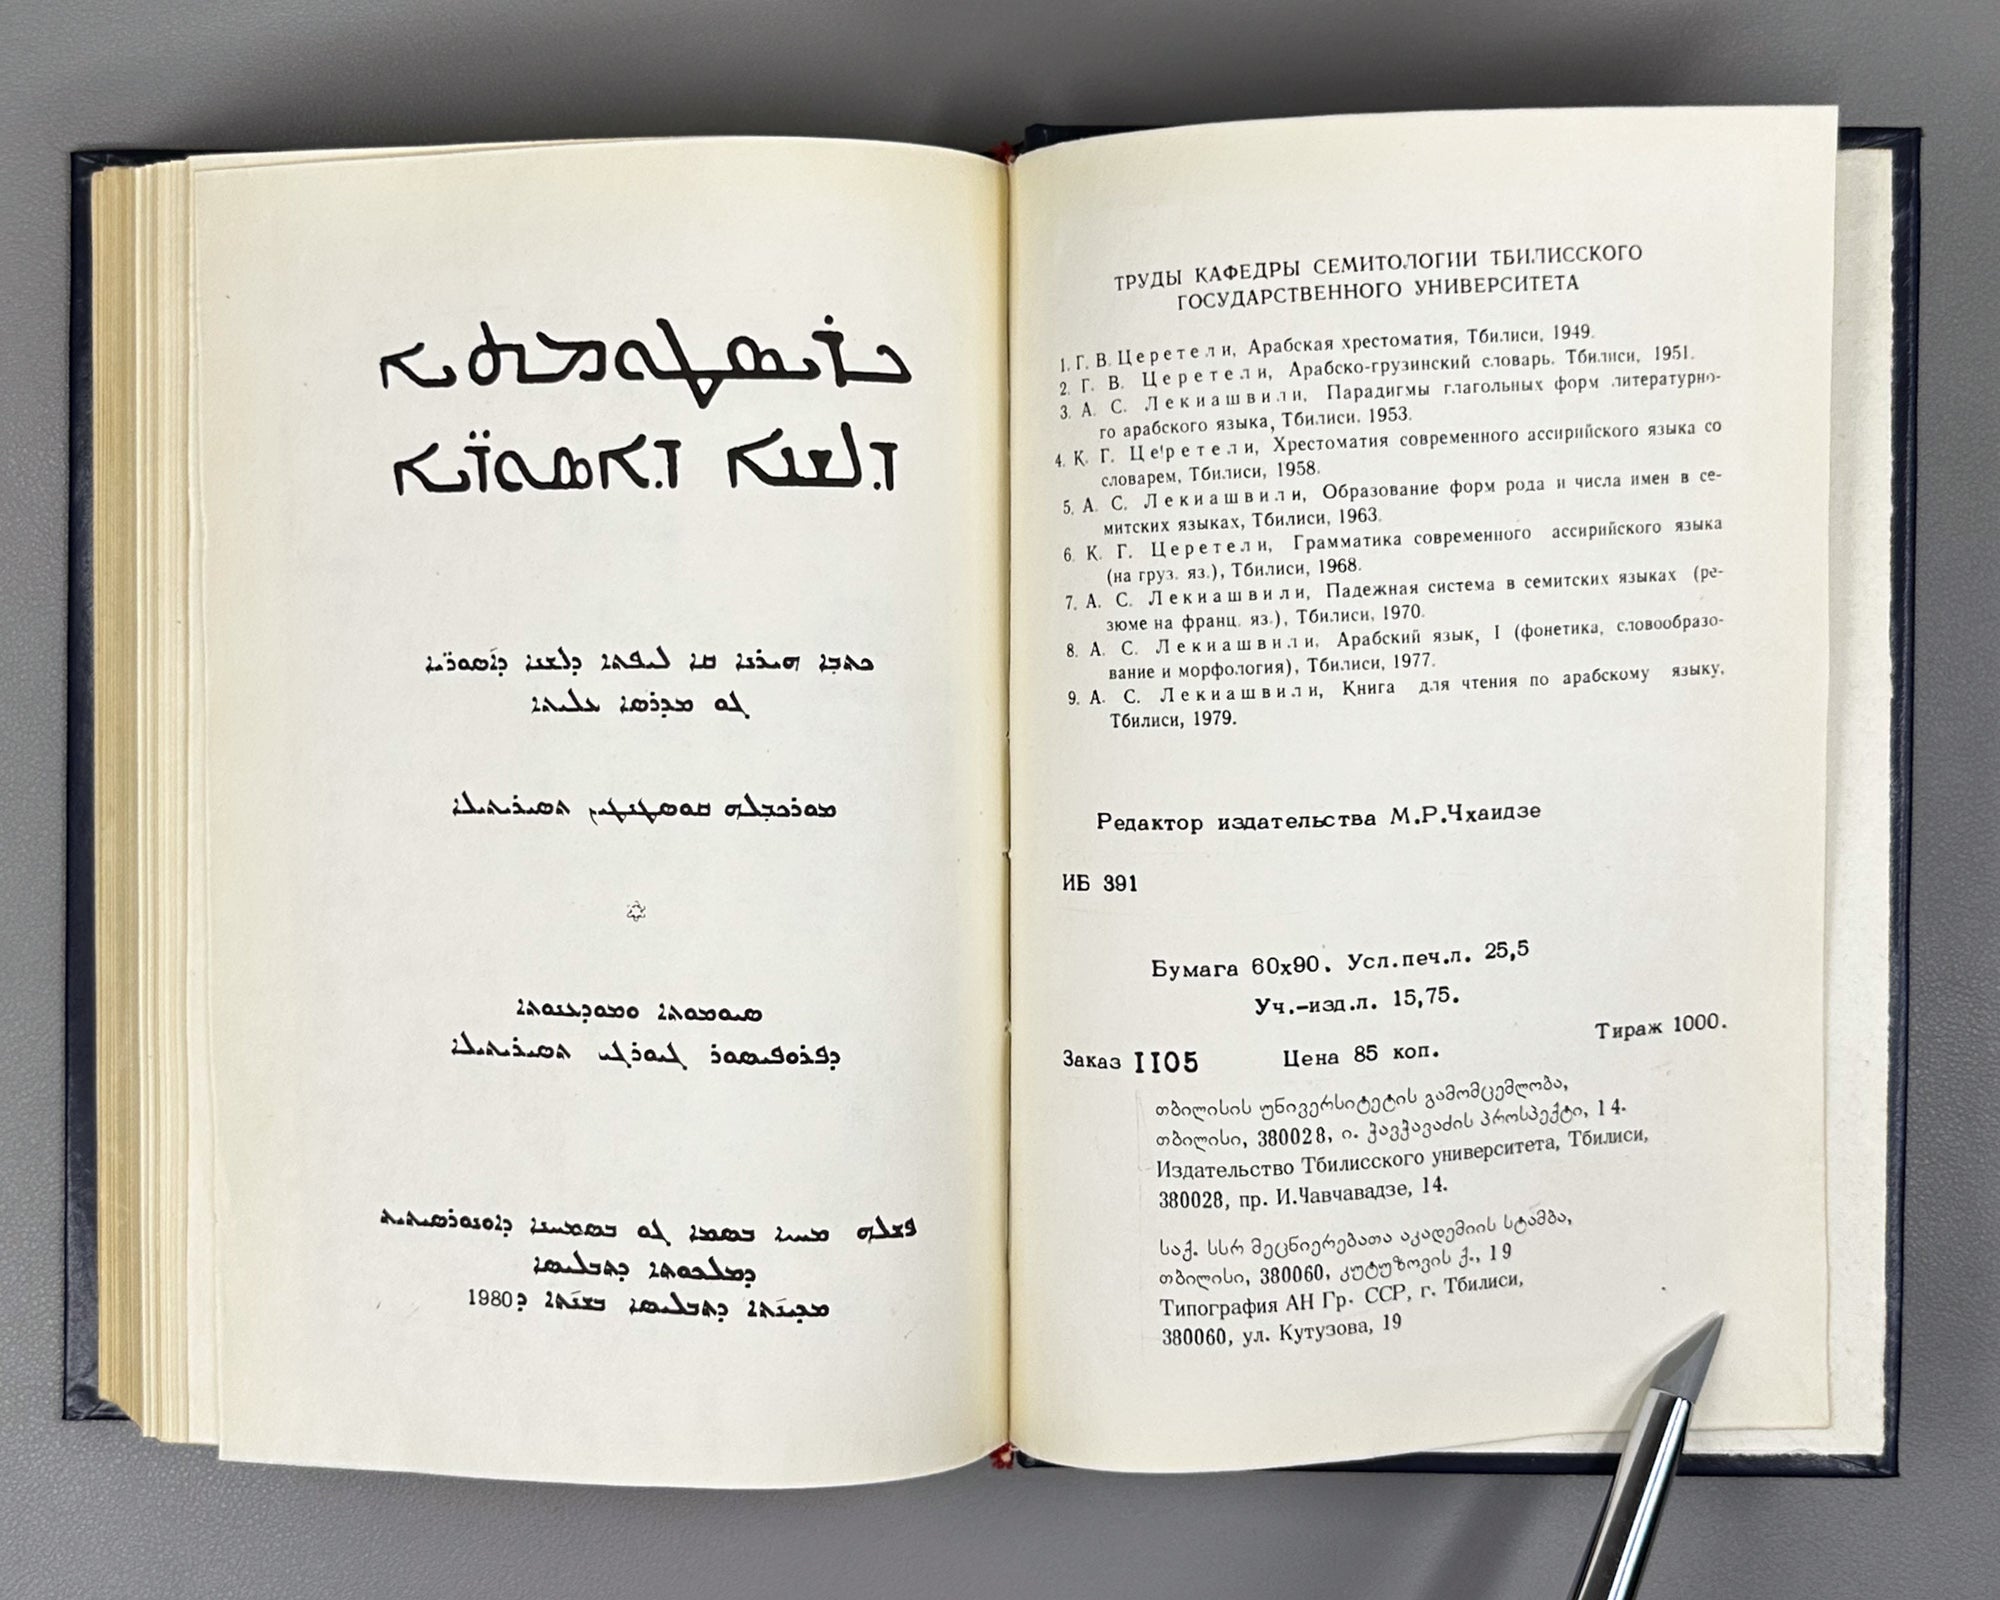 ܟܪܝܣܛܘܡܬܝܐ
ܕܠܫܢܐ ܕܐܣܘܪ̈ܝܐ
ܟܬܒܐ ܗܝܪܢܐ ܩܐ ܠܝܦܬܐ ܕܠܫܢܐ ܕܐܣܘܪ̈ܝܐ
ܓܘ ܡܕܪܣܐ ܥܠܝܬܐ
ܡܘܪܟܒܠܗ ܩܘܣܛܢܛܝܢ ܬܣܝܪܝܬܝܠܐ
ܣܝܘܡܘܬܐ ܘܡܘܕܥܢܘܬܐ
ܕܦܪܘܦܝܣܘܪ ܓܝܘܪܓܝ ܬܣܝܪܝܬܝܠܐ
ܦܫܠܗ ܡܚܝܐ ܒܣܡܐ ܓܘ ܒܣܡܚܢܐ ܕܐܘܢܘܪܣܝܬܝܬ
ܕܡܠܟܘܬܐ ܕܬܒܠܝܣܐ
ܡܕܝܢ݇ܬܐ ܕܬܒܠܝܣܐ ܒܫܢ݇ܬܐ ܕ1980
ТРУДЫ КАФЕДРЫ СЕМИТОЛОГИИ ТБИЛИССКОГО
ГОСУДАРСТВЕННОГО УНИВЕРСИТЕТА
1. Г. В. Церетели, Арабская хрестоматия, Тбилиси, 1949.
2. Г. В. Церетели, Арабско-грузинский словарь. Тбилиси, 1951.
3. А. С. Лекиашвили, Парадигмы глагольных форм литературно-
го арабского языка, Тбилиси. 1953.
4. К. Г. Церетели, Хрестоматия современного ассирийского языка со
словарем, Тбилиси, 1958.
5. А. С. Лекиашвили, Образование форм рода и числа имен в се-
митских языках, Тбилиси, 1963.
6. К. Г. Церетели, Грамматика современного ассирийского языка
(на груз. яз.), Тбилиси, 1968.
7. А. С. Лекиашвили, Падежная система в семитских языках (ре-
зюме на франц. яз.), Тбилиси, 1970.
8. А. С. Лекиашвили, Арабский язык, I (фонетика, словообразо-
вание и морфология), Тбилиси, 1977.
9. А. С. Лекиашвили, Книга для чтения по арабскому языку,
Тбилиси, 1979.
Редактор издательства М.Р.Чхаидзе
ИБ 391
Бумага 60х90. Усл.печ.л. 25,5
Уч.-изд.л. 15,75.
Тираж 1000.
Заказ II05 Цена 85 коп.
თბილისის უნივერსიტეტის გამომცემლობა,
თბილისი, 380028, ი. ჭავჭავაძის პროსპექტი, 14.
Издательство Тбилисского университета, Тбилиси,
380028, пр. И.Чавчавадзе, 14.
საქ. სსრ მეცნიერებათა აკადემიის სტამბა,
თბილისი, 380060, კუტუზოვის ქ., 19
Типография АН Гр. ССР, г. Тбилиси,
380060, ул. Кутузова, 19